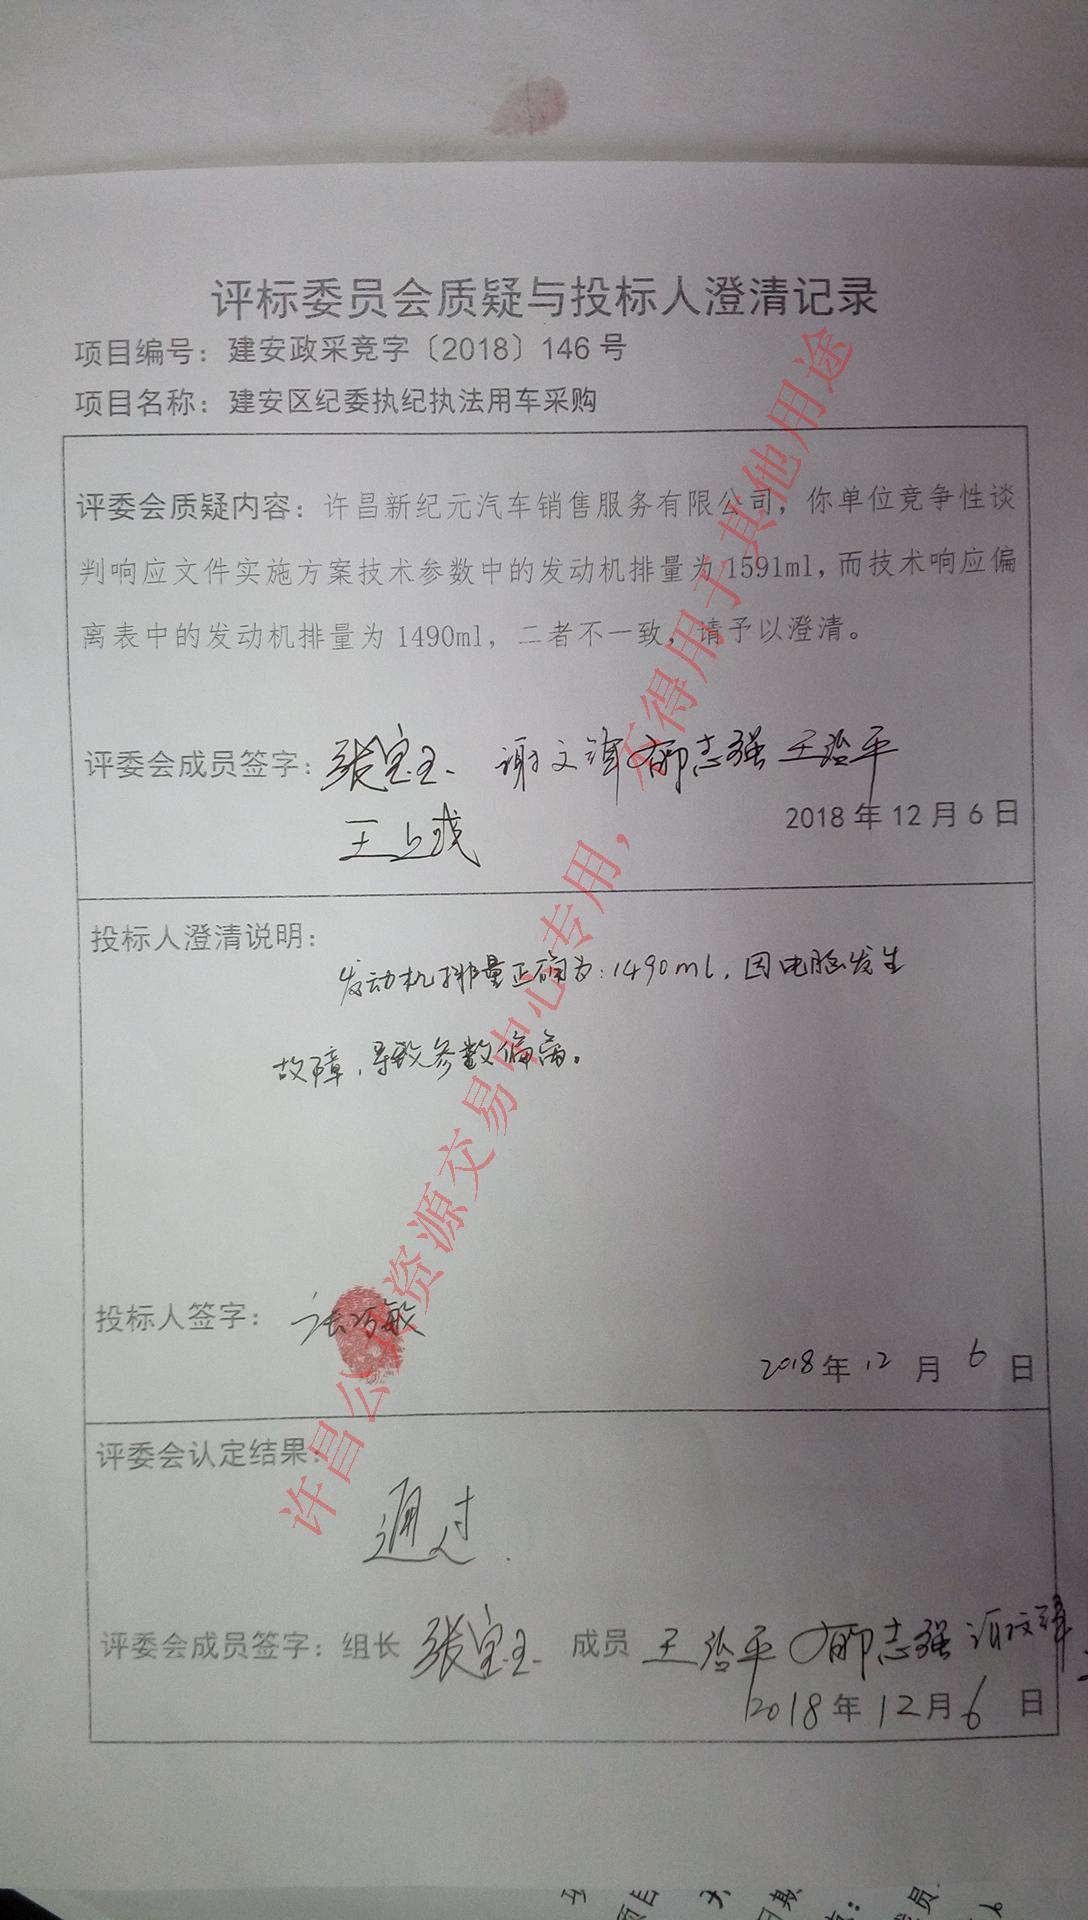 评标委员会质疑与投标人澄清记录
项目编号：建安政采竞字〔2018〕146号
项目名称：建安区纪委执纪执法用车采购
评委会质疑内容：许昌新纪元汽车销售服务有限公司，你单位竞争性谈
判响应文件实施方案技术参数中的发动机排量为1591ml，而技术响应偏
离表中的发动机排量为1490ml，二者不一致，请予以澄清。
评委会成员签字：张宝玉 谢文 郁志强 王治平
2018年12月6日
投标人澄清说明：
发动机排量正确为：1490ml，因电脑发生
故障，导致参数偏离。
投标人签字：张巧敏
2018年12月6日
评委会认定结果：
通过
评委会成员签字：组长 张宝玉 成员 王治平 郁志强
2018年12月6日
许昌公共资源交易中心专用，不得用于其他用途